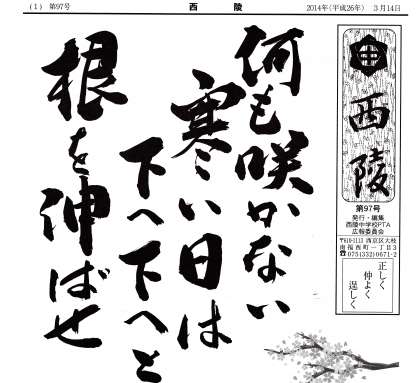 (1) 第97号
西陵
2014年(平成26年) 3月14日
西陵
第97号
発行・編集
西陵中学校PTA
広報委員会
〒610-1113 西京区大枝
南福西町一丁目3
☎075(332)0671-2
正しく
仲よく
逞しく
何も咲かない
寒い日は
下へ下へと
根を沖ばせ